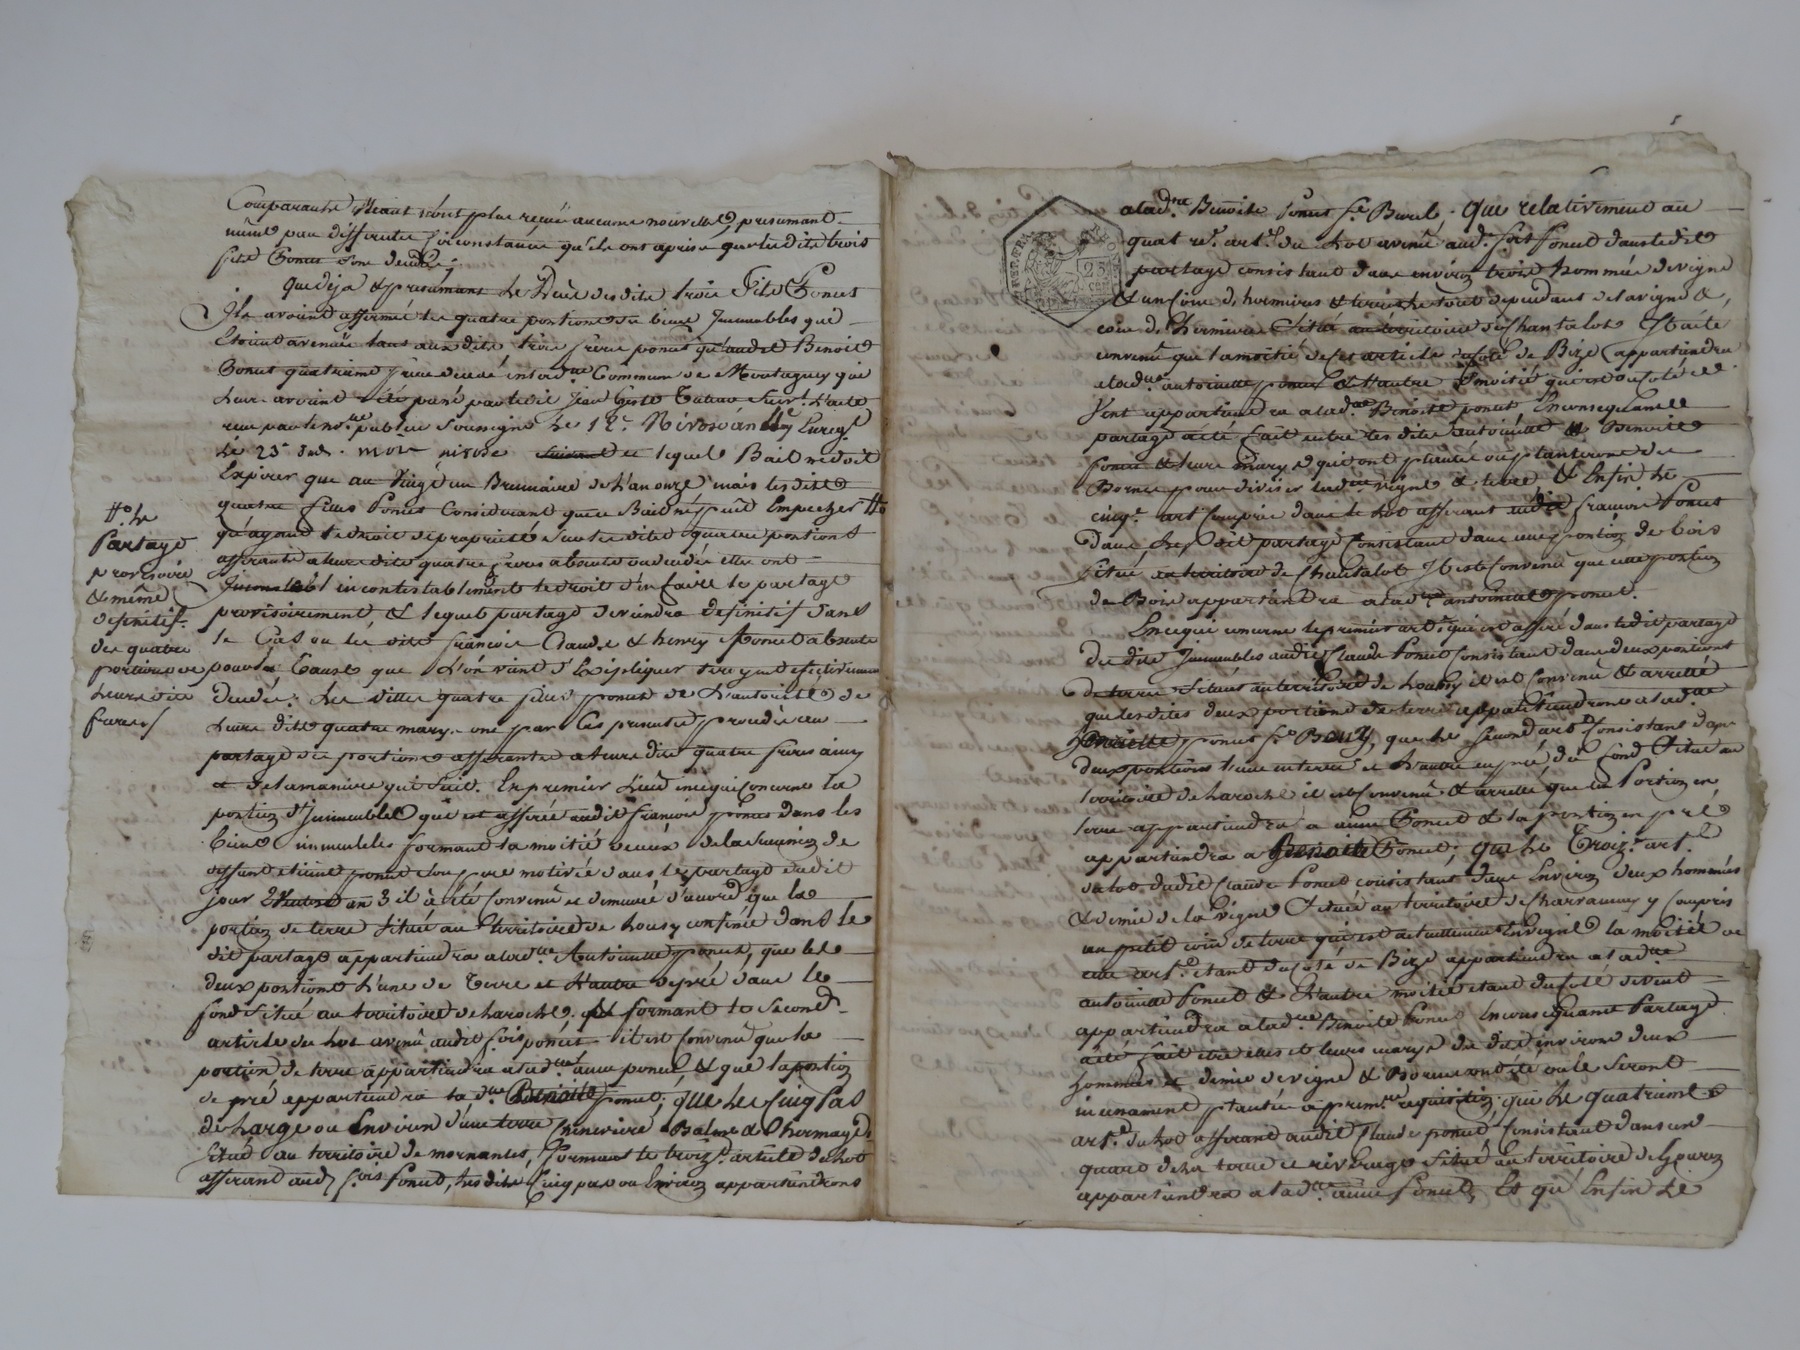 Comparants n'eant plus reçue aucune nouvelle, presumant
même par differentes circonstances qu'ils ont aprise que lesdits trois
fils Poncet sont decedés;
Que deja & presumant le Deces desdits trois Fils Poncet
Ils avoient affermé les quatre portions de biens Immeubles qui
Etoient avenues tant aux dits trois freres poncet qu'audit Benoit
Poncet quatrieme frere decedé en lad.ue Commune de Montagny qui
leur avoient été par
reçu par le no.re public soussigné le 12.e Nivose an Enreg.é
le 23.e nivose lequel Bail ne doit
Expirer que au Vingt un Brumaire de l'an onze mais lesdites
quatre filles Poncet Considerant que ce Bail ne peut Empecher #
qu'ayant le droit de proprieté sur lesdites quatre portions
afferante a leurs dits quatre freres absents ou decedés elles ont
incontestablement le droit d'en faire le partage
provisoirement, & lequel partage deviendra definitif dans
le Cas ou les dits françois Claude & henry Poncet absents
pour la Cause que l'on vient d'Expliquer seroient effectivement
decedés. les dittes quatre filles poncet de l'autorité de
leurs dits quatre marys ont par ces presentes procedé au
partage des portions afferantes a leurs dits quatre freres ainsy
et de la maniere qui suit. En premier Lieu en ce qui Concerne la
portion d'Immeubles qui est afferée audit françois poncet dans les
biens immeubles formant la moitié de ceux de la succession de
deffunt etienne poncet leur pere motivée dans le partage dudit
jour an 3 il a été Convenu et demeuré d'accord que la
portion de terre située au territoire de housy confinée dans le
dit partage appartiendra a lad.ue Antoinette poncet, que les
deux portions l'une de terre et l'autre de pré dans le
fond situé au territoire de laroche, formant le second
article du lot avenu audit fois poncet il est Convenu que la
portion de terre appartiendra a lad.ue anne poncet & que la portion
de pré appartiendra a la d.ue Benoite poncet; que les Cinq Pas
de large ou Environ d'une terre Cheneviere
situé au territoire de mornantes, formant le trois.e article du lot
afferant aud. fois Poncet, les dits Cinq pas ou Environ appartiendront
#o le
Partage
provisoire
& même
definitif
des quatre
portions de
leurs dits
freres/
25
a lad.ue Benoite Poncet f.e Burel. Que relativement au
quatre.e art.e du lot avenu aud. fois Poncet dans ledit
partage consistant dans environ trois hommées de vigne
& un coin d'hermires & terre le tout dependant de la vigne &
coin d'hermires situé au territoire de Chantalot Il a été
convenu que la moitié de cet article du coté de Bize appartiendra
a lad.ue antoinette poncet & l'autre moitié qui est du coté de
Vent appartiendra a lad.ue Benoite poncet En consequence le
partage a été fait entre les dites antoinette & Benoite
Poncet & leurs marys qui ont planté ou planteront des
Bornes pour diviser lad.ue vigne & terre & Enfin le
cinq.e art. compris dans le lot afferant audit françois Poncet
dans le dit partage Consistant dans une portion de bois
situé au territoire de Chantalot Il est Convenu que cette portion
de Bois appartiendra a lad.ue antoinette poncet.
En ce qui concerne le premier art.e qui est afferé dans ledit partage
des dits Immeubles audit Claude Poncet Consistant dans deux portions
de terre situées au territoire de housy il est convenu & arretté
que lesdites deux portions de terre appartiendront a lad.ue
poncet f.e Bouly, que le second art.e Consistant dans
deux portions l'une en terre et l'autre en pré, du fond situé au
territoire de laroche il est Convenu & arretté que la Portion en
terre appartiendra a anne Poncet & la portion en pré
appartiendra a Benoite Poncet; que le Trois.e art.e
du lot dudit Claude Poncet consistant dans Environ deux hommées
& demie de la vigne situé au territoire de Charramy y compris
un petit coin de terre qui est actuellement En vigne la moitié de
cet art.e etant du coté de Bize appartiendra a lad.ue
antoinette Poncet & l'autre moitié etant du coté de vent
appartiendra a lad.ue Benoite Poncet En consequence Partage
a été fait entre elles et leurs marys des dits environs deux
hommées & demie de vigne & Bornes ont été ou le seront
incessament plantées a prem.re requisition; que le quatrieme
art.e du lot afferant audit Claude poncet Consistant dans un
quart de la terre et riverage situé au territoire de
appartiendra a lad.ue anne Poncet, Et qu'Enfin le